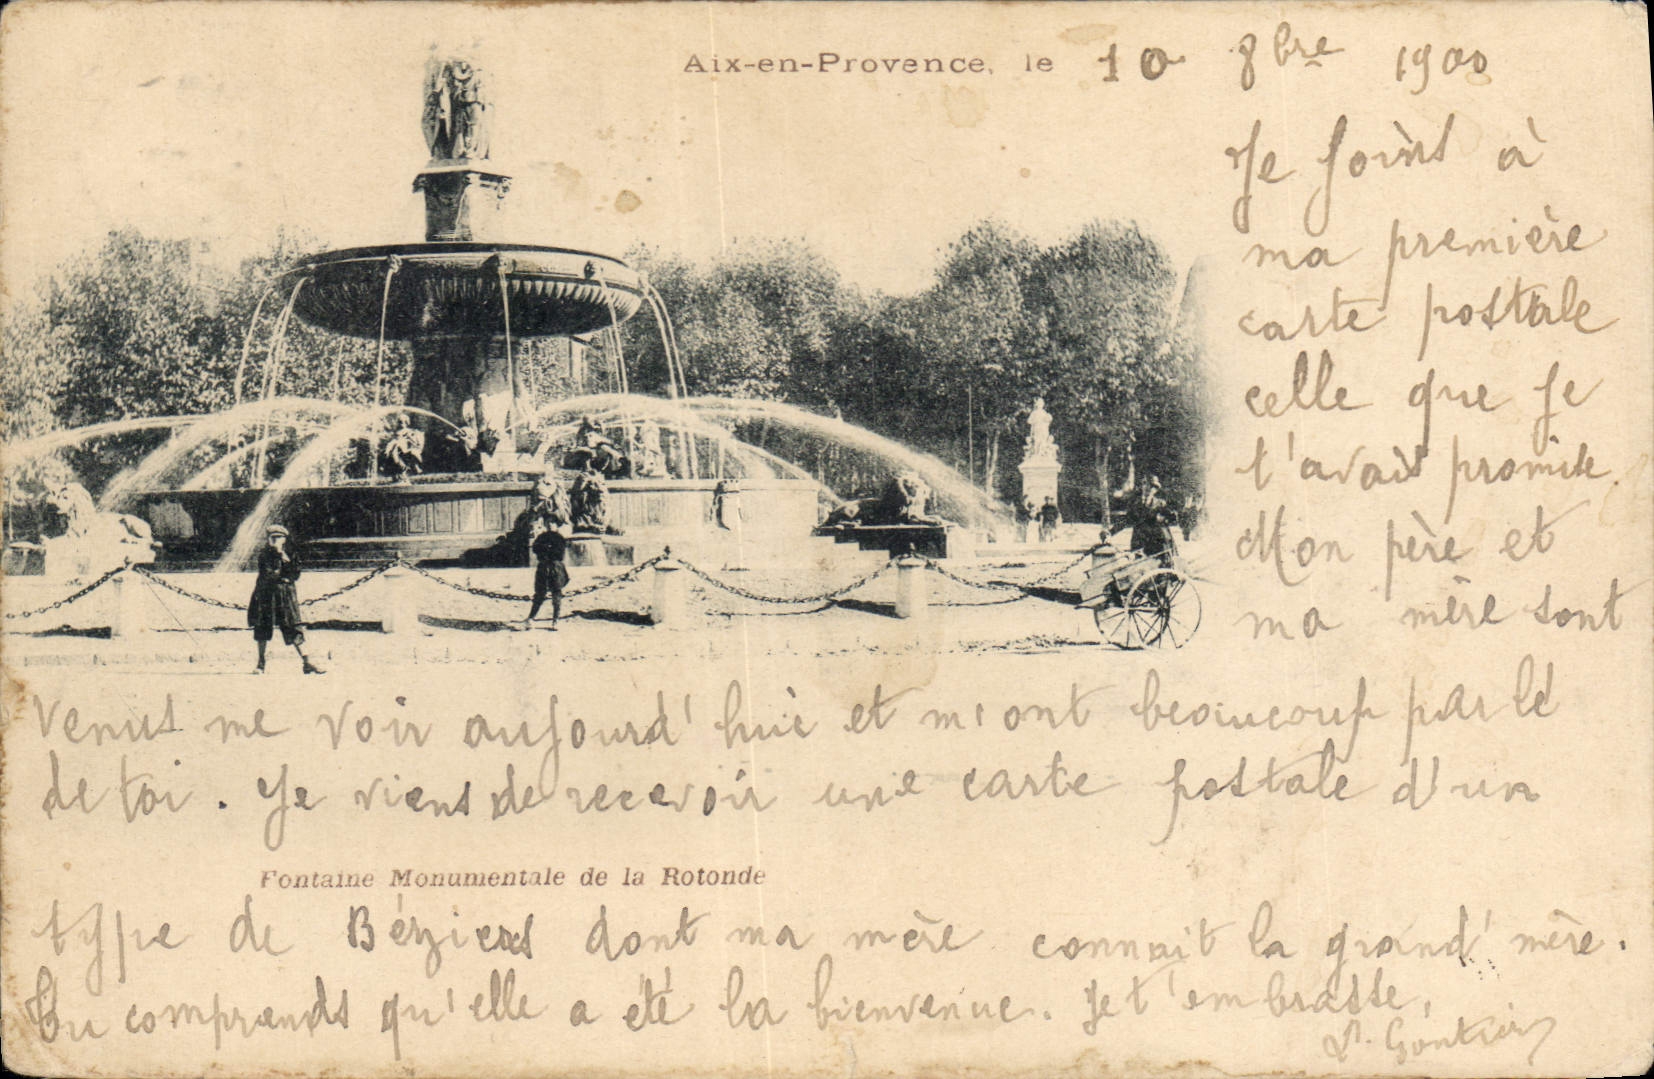 Aix-en-Provence, le 10 8bre 1900
Je joins à
ma première
carte postale
celle que je
t'avais promise.
Mon père et
ma mère sont
venus me voir aujourd'hui et m'ont beaucoup parlé
de toi. Je viens de recevoir une carte postale d'un
Fontaine Monumentale de la Rotonde
type de Béziers dont ma mère connait la grand'mère.
Tu comprends qu'elle a été la bienvenue. Je t'embrasse.